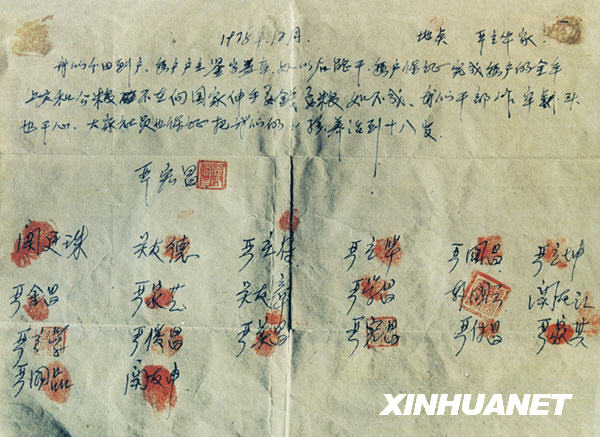 1978年12月 地点 严立华家
我们分田到户,每户户主签字盖章,如以后能干,每户保证完成每户的全年
上交和公粮,不在向国家伸手要钱要粮,如不成,我们干部作牢剎头
也干心,大家社员也保证把我们的小孩养活到十八岁。
严宏昌
关廷珠 关友德 严立符 严立华 严国昌 严立坤
严金昌 严家芝 关友章 严学昌 韩国云 关友江
严立学 严俊昌 严美昌 严宏昌 严付昌 严家其
严国品 关友申
XINHUANET